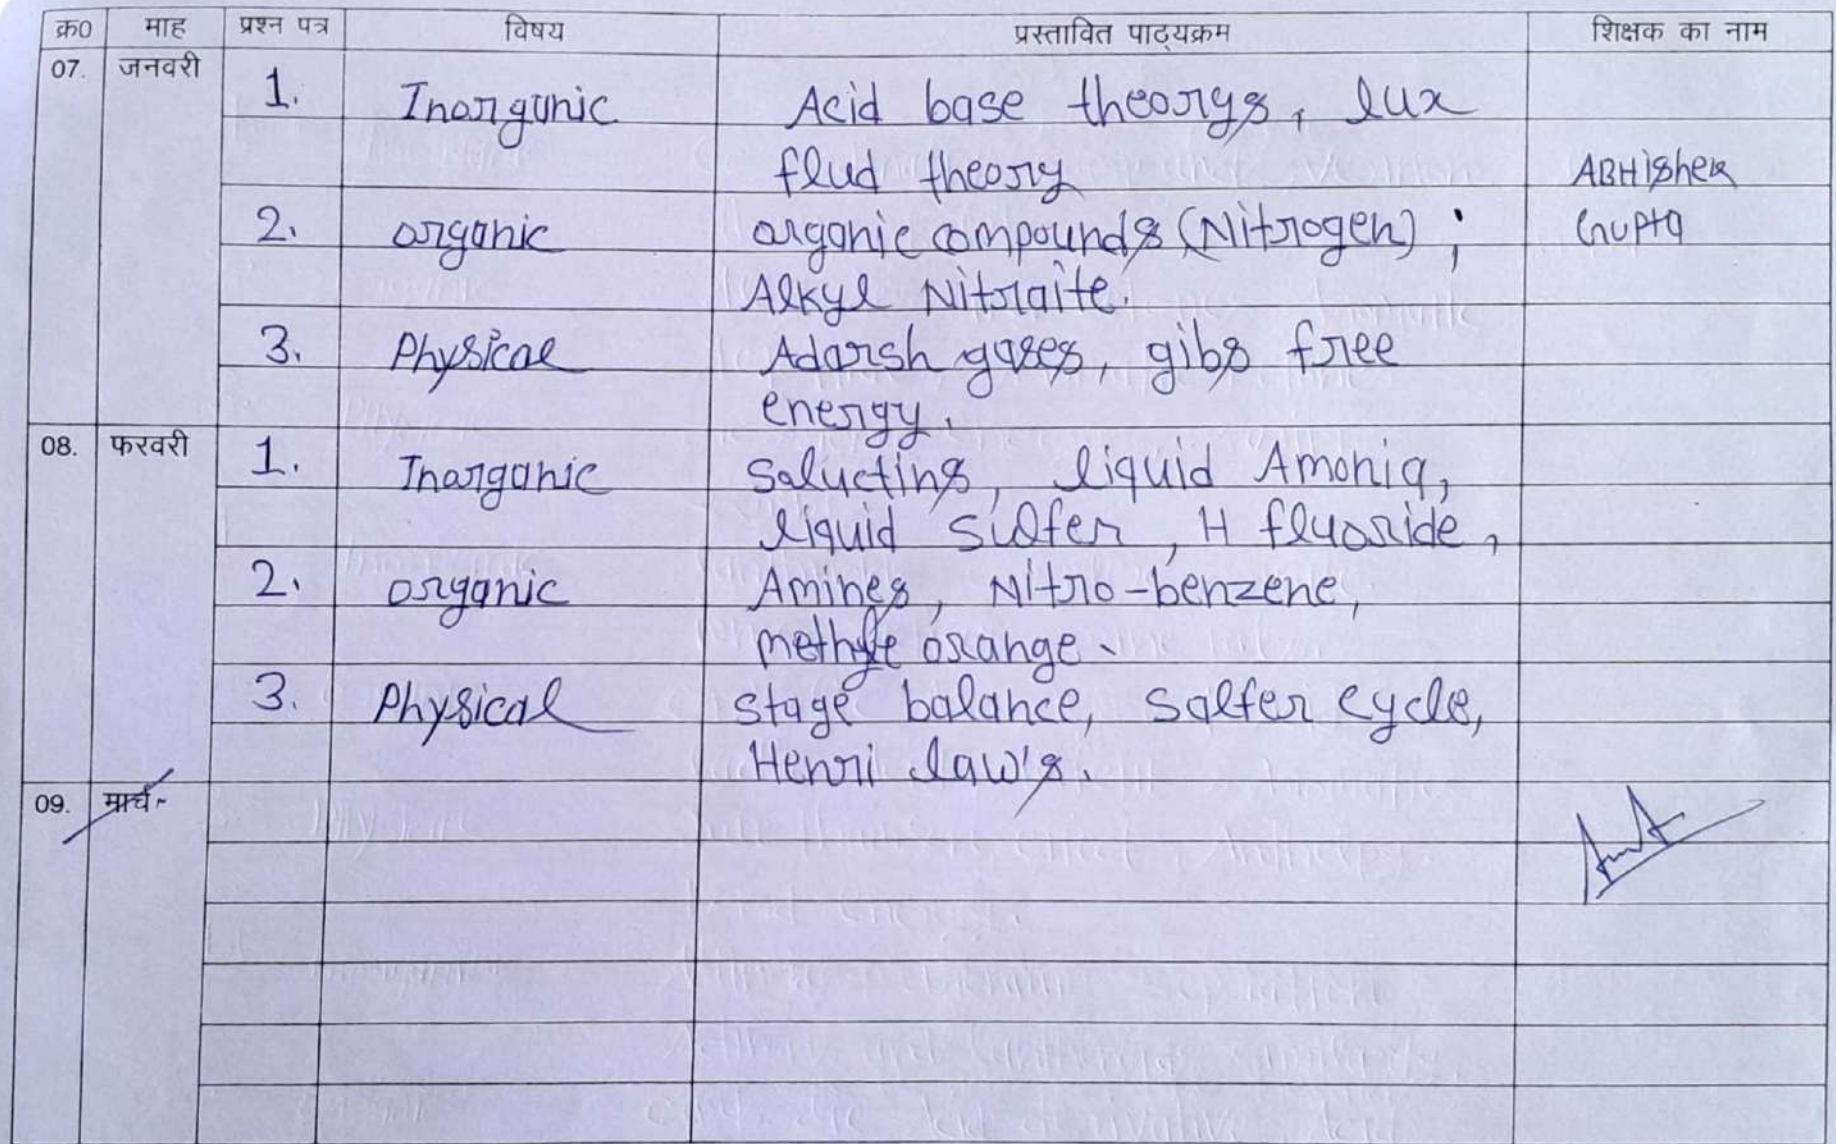 क्र0 माह प्रश्न पत्र विषय प्रस्तावित पाठ्यक्रम शिक्षक का नाम
07. जनवरी 1. Inorganic Acid base theorys, lux
flud theory ABHishek
2. organic organic compounds (Nitrogen) ; Gupta
Alkyl Nitraite.
3. Physical Adarsh gases, gibs free
energy.
08. फरवरी 1. Inorganic Saluctins, liquid Amonia,
liquid sulfer, H fluoride,
2. organic Amines, Nitro-benzene,
methyle orange.
3. Physical stage balance, Salfer cycle,
Henri law's.
09. मार्च